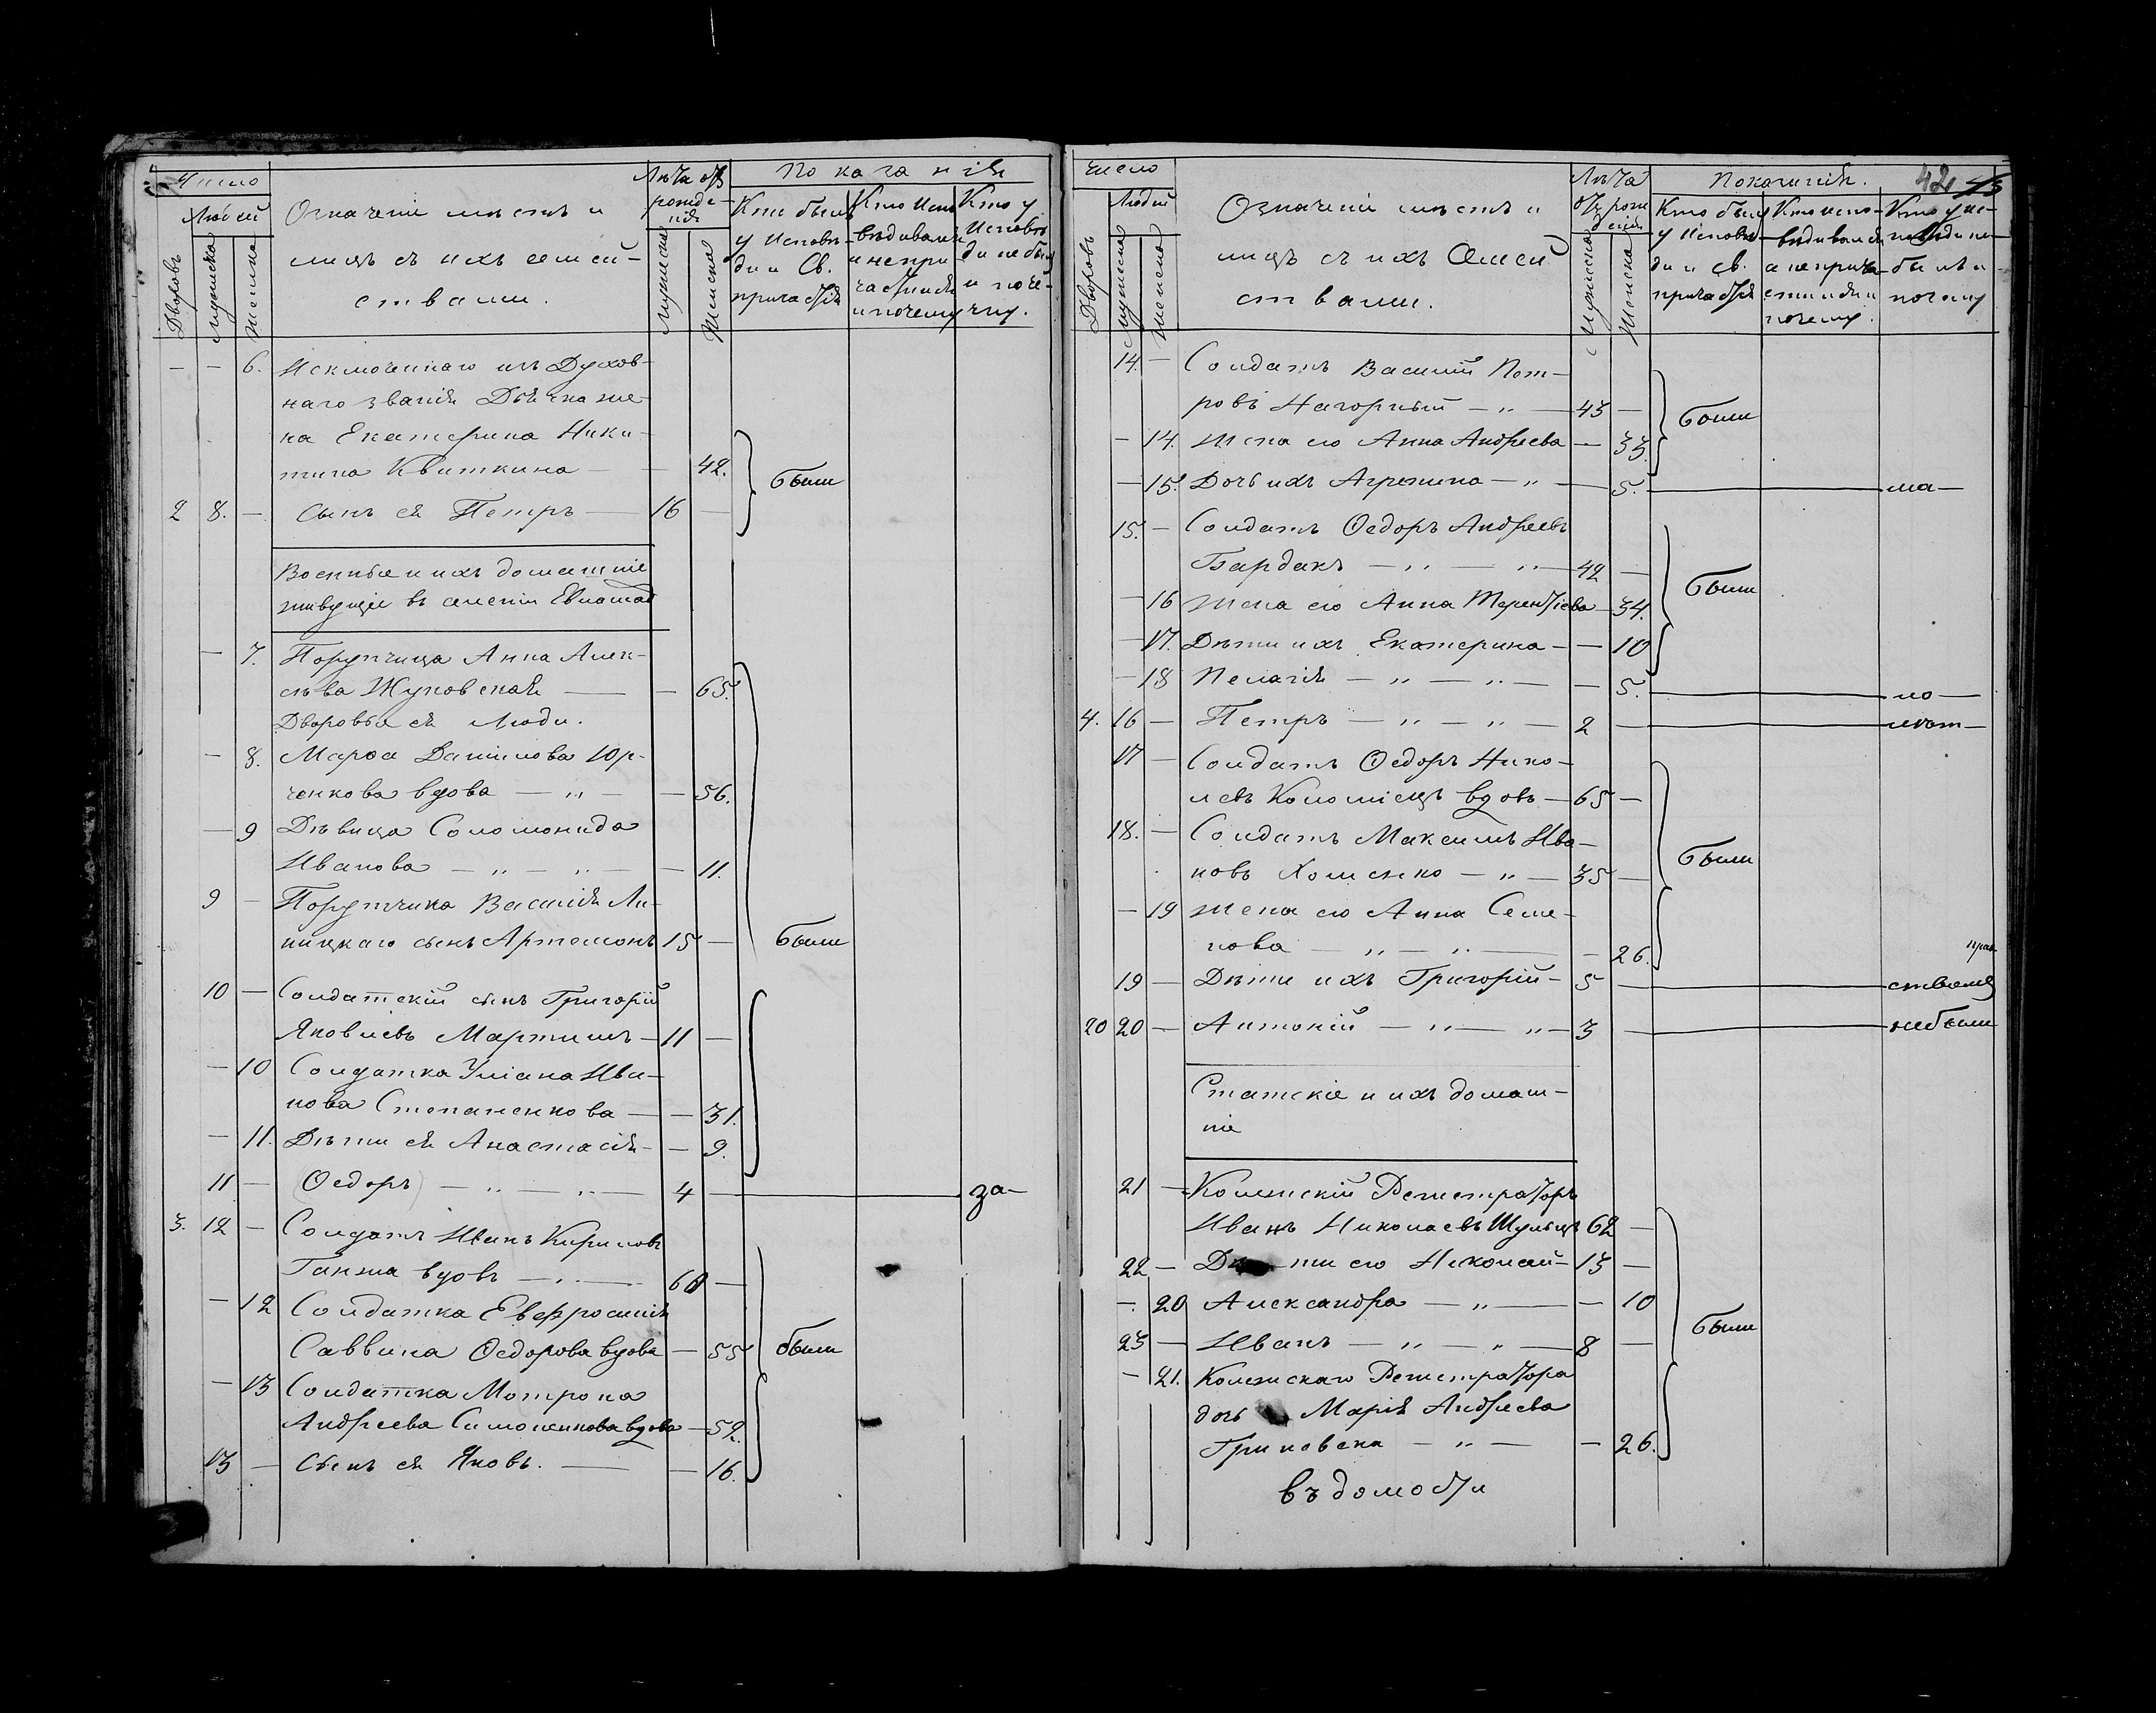 Число
Людей
Дворовъ
мужеска
женска
Означеніе мѣстъ и
лицъ съ ихъ семей-
ствами.
Лѣта отъ
рожде-
нія
Мужеска
Женска
Показанія
Кто былъ
у Исповѣ-
ди и Св.
причастія
Кто Испо
вѣдывался
и не при
частился
и почему
Кто у
Исповѣ
ди не былъ
и поче-
чму.
- - 6. Исключеннаго изъ Духов-
наго званія Дьячка же-
на Екатерина Ники-
тина Квиткина — 42.
были
2 8. - Сынъ ея Петръ — 16 —
Военные и ихъ домашніе
живущіе въ селеніи
- 7. Порутчица Анна Алек-
сѣва Жуковская — - 65.
Дворовые ея люди.
- 8. Марѳа Данилова Юр-
ченкова вдова — „ — - 56.
- 9 Дѣвица Соломонида
Иванова — „ — „ — - 11.
9 - Порутчика Василія Ли-
ницкаго сынъ Артемонъ 15 —
были
10 — Солдатскій сынъ Григорій
Яковлевъ Мартишъ — 11 —
- 10 Солдатка Уліана Ива-
нова Степаненкова — - 31.
- 11. Дѣти ея Анастасія — - 9.
11 — (Ѳедоръ) — „ — „ — 4 — за-
3. 12 — Солдатъ Иванъ Кириловъ
Ганжа вдовъ — „ — 60 —
- 12 Солдатка Евфросинія
Саввина Ѳедорова вдова — 55
были
- 13 Солдатка Мотрона
Андреева Симоненкова вдова — 52.
13 — Сынъ ея Яковъ. — - 16.
42
Число
Людей
Дворовъ
мужеска
женска
Означеніе мѣстъ и
лицъ съ ихъ Семей
ствами.
Лѣта
отъ рож
денія
Мужеска
Женска
Показанія.
Кто былъ
у Исповѣ-
ди и Св.
причастія
Кто испо-
вѣдывался
а не прича-
стился и
почему.
Кто у ис-
повѣди не
былъ и
почему
14. — Солдатъ Василій Пет-
ровъ Нагорный — „ — 43 —
были
- 14. Жена его Анна Андреева — 33.
- 15. Дочь ихъ Агрипина — „ — 5. — ма —
15. — Солдатъ Ѳедоръ Андреевъ
Бардакъ — „ — „ — 42 —
были
- 16 Жена его Анна Терентіева — 34.
- 17. Дѣти ихъ Екатерина — — 10
- 18 Пелагія — „ — „ — — 5. — ло —
4. 16 — Петръ — „ — „ — 2 — лѣт —
17 — Солдатъ Ѳедоръ Нико-
лаевъ Коломіецъ вдовъ — 65 —
18. — Солдатъ Максимъ Ива-
новъ Хоменко — „ — 35 —
были
- 19 Жена его Анна Семе-
нова — „ — „ — - 26.
19 — Дѣти ихъ Григорій — 5 — ствомъ
20 20 — Антоній — „ — „ — 3 — небыли
Статскіе и ихъ домаш-
ніе
21 — Колежскій Регистраторъ
Иванъ Николаевъ Шульцъ 62 —
22 — Дѣти его Николай — 13 —
- 20 Александра — „ — — 10
были
23 — Иванъ — „ — „ — 8 —
- 21. Колежскаго Регистратора
дочь Марія Андреева
Гриневска — „ — - 26.
вѣдомости